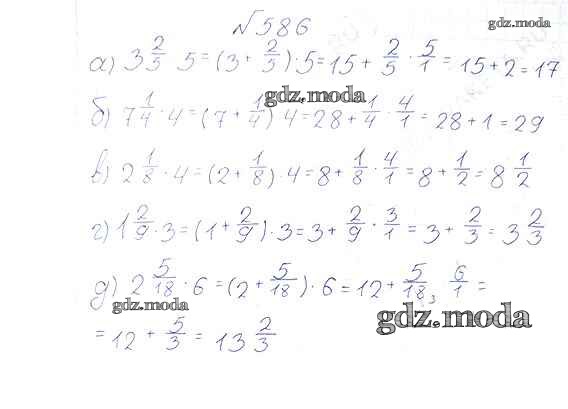 №586
gdz.moda
а) 3 2/5 5 = (3 + 2/5) · 5 = 15 + 2/5 · 5/1 = 15 + 2 = 17
gdz.moda
б) 7 1/4 · 4 = (7 + 1/4) 4 = 28 + 1/4 · 4/1 = 28 + 1 = 29
в) 2 1/8 · 4 = (2 + 1/8) · 4 = 8 + 1/8 · 4/1 = 8 + 1/2 = 8 1/2
г) 1 2/9 · 3 = (1 + 2/9) · 3 = 3 + 2/9 · 3/1 = 3 + 2/3 = 3 2/3
д) 2 5/18 · 6 = (2 + 5/18) · 6 = 12 + 5/18 3 · 6/1 =
gdz.moda
gdz.moda
= 12 + 5/3 = 13 2/3